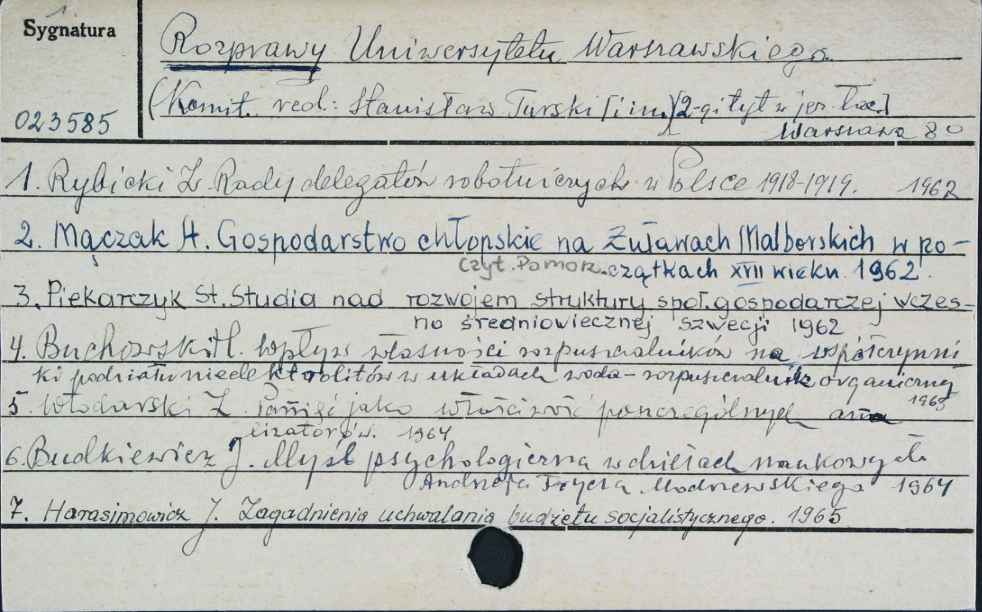 Sygnatura
Rozprawy Uniwersytetu Warszawskiego
(Komit. red.: Stanisław Turski [i in.]) [2-gi tyt. w jęz. łac.]
023585
Warszawa 8°
1. Rybicki Z. Rady delegatów robotniczych w Polsce 1918-1919. 1962
2. Mączak A. Gospodarstwo chłopskie na Żuławach Malborskich w po-
Czyt. Pomorz. czątkach XVII wieku. 1962.
3. Piekarczyk St. Studia nad rozwojem struktury społ. gospodarczej wczes-
no średniowiecznej Szwecji 1962
4. Buchowski H. Wpływ własności rozpuszczalników na współczynni
ki podziału nieelektrolitów w układach woda-rozpuszczalnik organiczny
1963
5. Włodarski Z. Pamięć jako właściwość poszczególnych ana
lizatorów. 1964
6. Budkiewicz J. Myśl psychologiczna w dziełach naukowych
Andrzeja Frycza Modrzewskiego 1964
7. Harasimowicz J. Zagadnienia uchwalania budżetu socjalistycznego. 1965